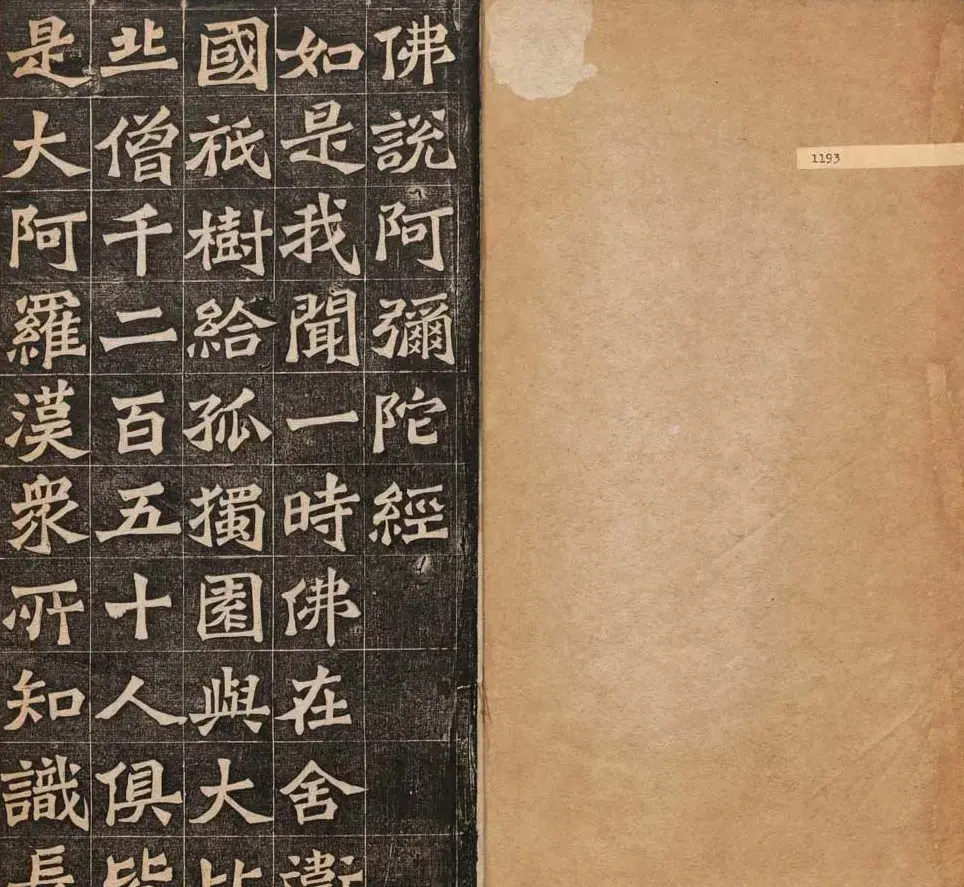 1193
佛說阿彌陀經
如是我聞一時佛在舍衛
國祇樹給孤獨園與大比
丘僧千二百五十人俱皆
是大阿羅漢衆所知識長